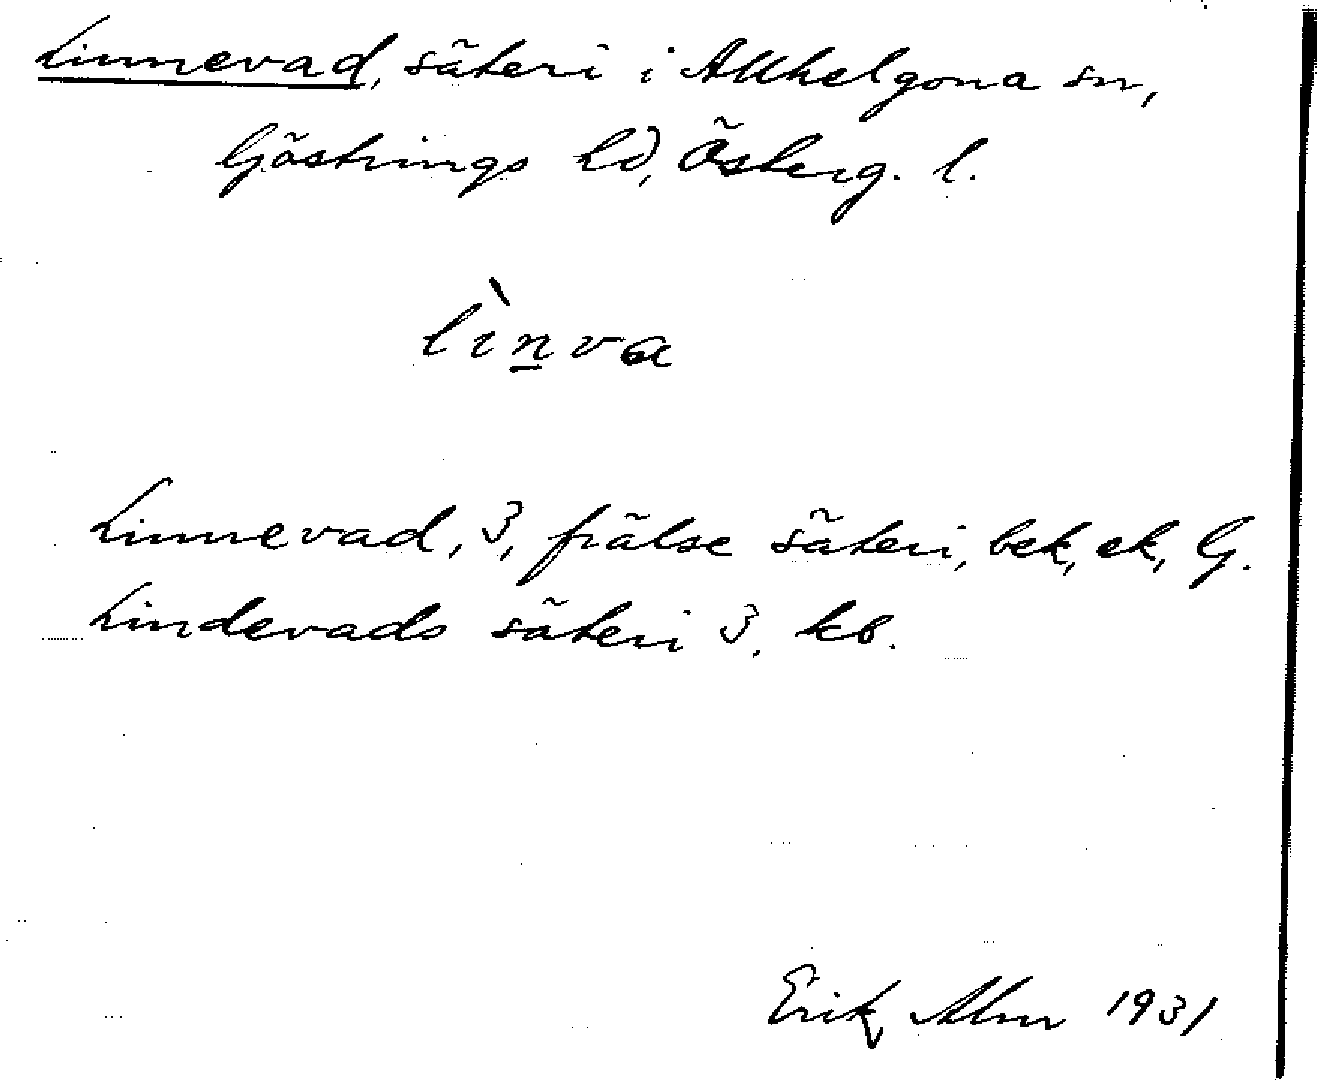 Linnevad, säteri i Allhelgona sn,
Göstrings hd, Österg. l.
lìn̲va
Linnevad, 3, frälse säteri, bek, ek, G.
Lindevads säteri 3, kb.
Erik Alm 1931